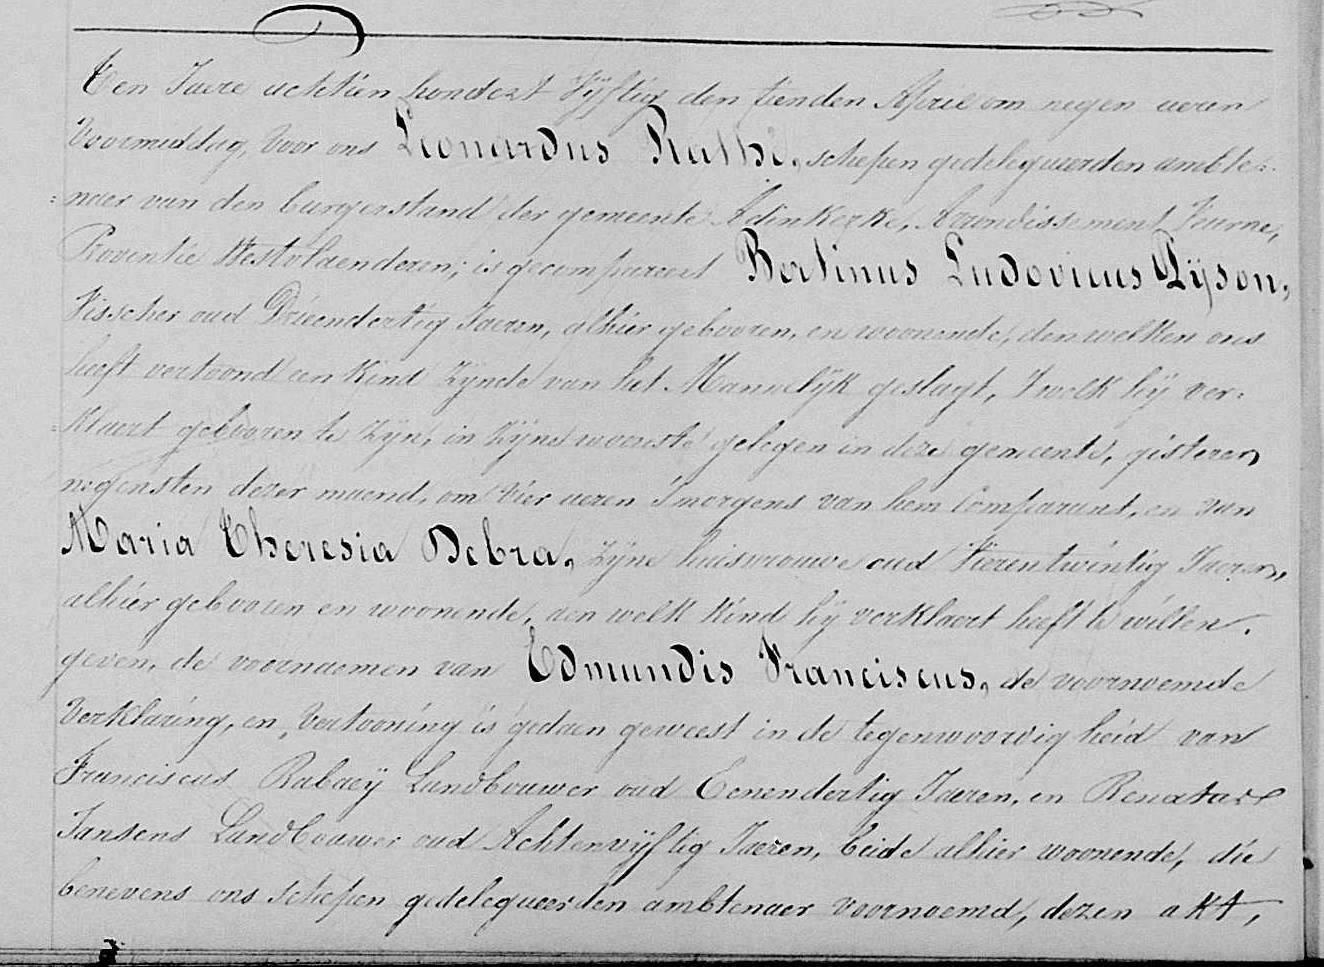 Ten Jaere achtien hondert Vÿftig den tienden April om negen ueren
Voormiddag, Voor ons Leonardus Rathé, schepen gedelegueerden ambte=
=naer van den burgerstand der gemeente Adinkerke, Arrondissement Feurne,
Provintie Westvlaenderen; is gecompareert Bertinus Ludovicus Lÿson,
Visscher oud Drieendertig Jaeren, alhier gebooren, en woonende, den welken ons
heeft vertoond een Kind Zÿnde van het Mannelÿk geslagt, 't welk hÿ ver=
=klaert gebooren te Zÿn, in Zÿne woonste gelegen in deze gemeente, gisteren
negensten dezer maend, om Vier ueren 's morgens van hem Comparant, en van
Maria Theresia Debra, Zÿne huisvrouwe oud Vierentwintig Jaeren,
alhier gebooren en woonende, aen welk Kind hÿ verklaert heeft te willen
geven, de voornaemen van Edmundis Franciscus, de voornoemde
Verklaring, en Vertooning is gedaen geweest in de tegenwoordigheid van
Franciscus Rabaeÿ Landbouwer oud Eenendertig Jaeren, en
Jansens Landbouwer oud Achtenvÿftig Jaeren, beide alhier woonende, die
benevens ons schepen gedelegueerden ambtenaer voornoemd, dezen akt,